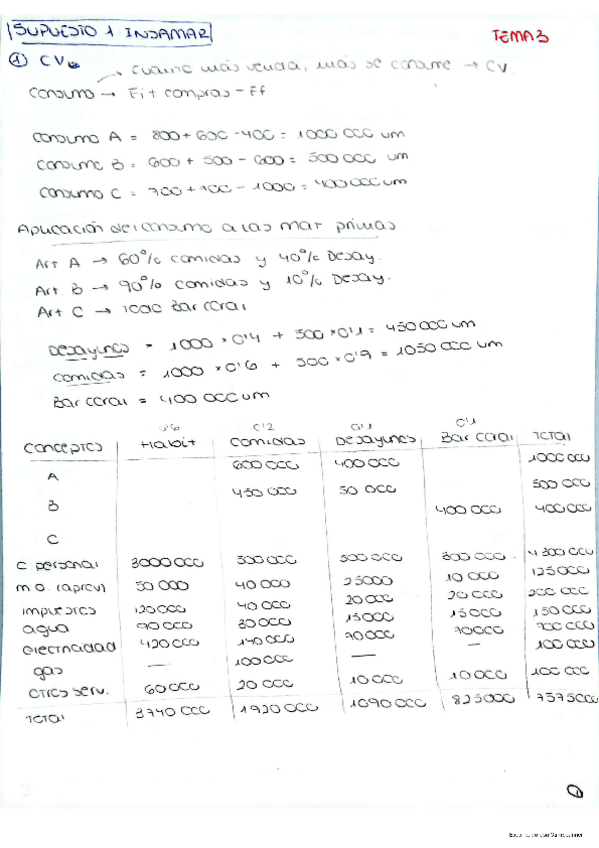 SUPUESTO 1 INSAMAR
TEMA 3
① CV
cuanto más venda, más se consume → CV
Consumo → Fi + compras - Ff
Consumo A = 800 + 600 - 400 = 1000 000 um
Consumo B = 600 + 500 - 600 = 500 000 um
Consumo C = 700 + 700 - 1000 = 400 000 um
Aplicación del consumo a las mat primas
Art A → 60% comidas y 40% Desay.
Art. B → 90% comidas y 10% Desay.
Art C → Todo Bar coral
Desayunos = 1000 × 0'4 + 500 × 0'1 = 450 000 um
comidas = 1000 × 0'6 + 500 × 0'9 = 1050 000 um
Bar coral = 400 000 um
0'6 0'2 0'1 0'1
Conceptos Habit Comidas Desayunos Bar coral Total
A 600 000 400 000 1000 000
B 450 000 50 000 500 000
C 400 000 400 000
C personal 3000 000 500 000 500 000 300 000 4300 000
M.O. (aprov) 50 000 40 000 25000 10 000 125000
impuestos 120 000 40 000 20 000 20 000 200 000
agua 90 000 30 000 15000 15000 150 000
electricidad 420 000 140 000 70 000 70000 700 000
gas — 100 000 — — 100 000
otros serv. 60 000 20 000 10 000 10 000 100 000
Total 3740 000 1920 000 1090 000 825000 7575000
1